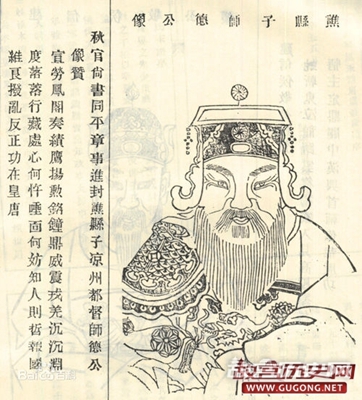 譙縣子師德公像
秋官尙書同平章事進封譙縣子涼州都督師德公
像贊
宣勞鳳閣奏績鷹揚勲銘鐘鼎威震戎羌沉沉淵
度落落行藏處心何忤唾面何妨知人則哲報國
維良撥亂反正功在皇唐
Bai百科
故宫历史网
www.GUGONG.net